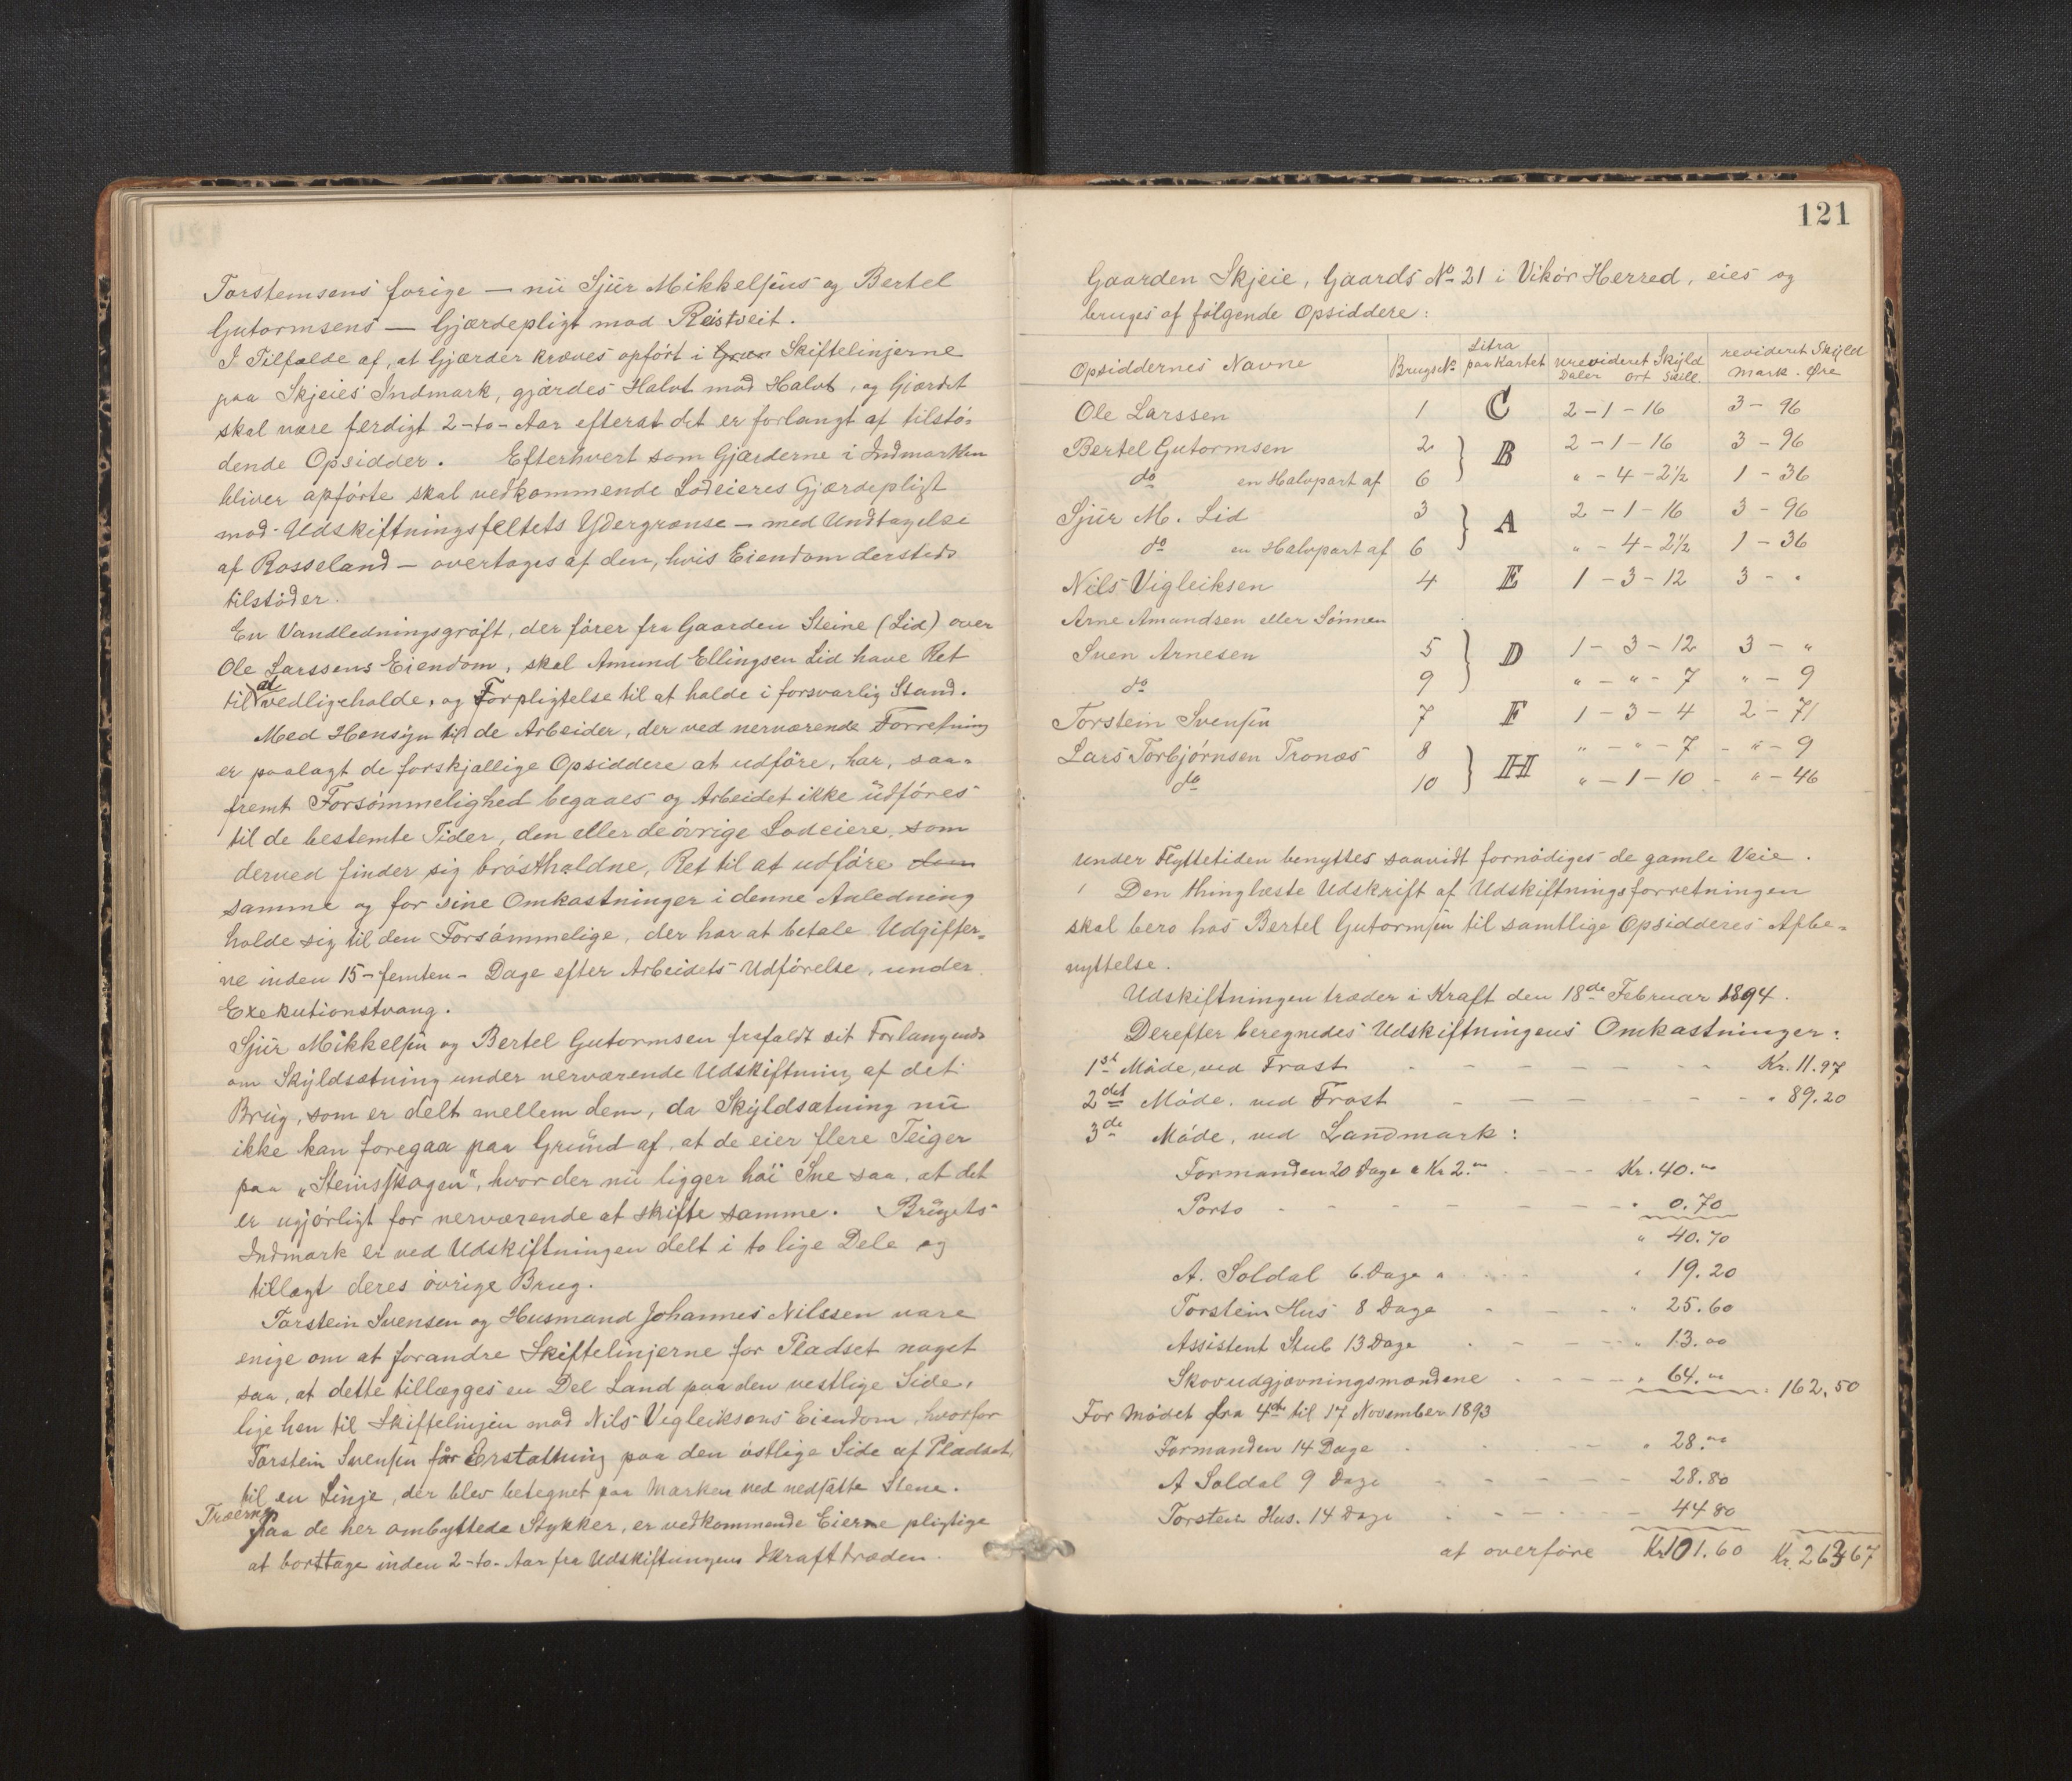 Torstemsens forige — nu Sjur Mikkelsens og Bertel
Gutormsens — Gjærdepligt mod Reistveit.
I Tilfælde af, at Gjærder kræves opført i Græn Skiftelinjerne
paa Skjeies Indmark, gjærdes Halvt mod Halvt, og Gjærdet
skal være ferdigt 2-to-Aar efterat det er forlangt af tilstö-
dende Opsidder. Efterhvert som Gjærderne i Indmarken
bliver opførte skal vedkommende Lodeieres Gjærdepligt
mod Udskiftningsfeltets Ydergrænse — med Undtagelse
af Rosseland — overtages af den, hvis Eiendom dersteds
tilstöder.
En Vandledningsgrøft, der fører fra Gaarden Steine (Lid) over
Ole Larssens Eiendom, skal Amund Ellingsen Lid have Ret
til at vedligeholde, og Forpligtelse til at holde i forsvarlig Stand.
Med Hensyn til de Arbeider, der ved nerværende Forretning
er paalagt de forskjællige Opsiddere at udföre, har, saa-
fremt Forsömmelighed begaaes og Arbeidet ikke udføres
til de bestemte Tider, den eller de övrige Lodeiere, som
derved finder sig brøstholdne, Ret til at udföre dem
samme og for sine Omkostninger i denne Anledning
holde sig til den Forsömmelige, der har at betale Udgifter-
ne inden 15-femten- Dage efter Arbeidets Udförelse, under
Exekutionstvang.
Sjur Mikkelsen og Bertel Gutormsen frafaldt sit Forlangende
om Skyldsætning under nerværende Udskiftning af det
Brug, som er delt mellem dem, da Skyldsætning nu
ikke kan foregaa paa Grund af, at de eier flere Teiger
paa „Steinsskogen", hvor der nu ligger höi Sne saa, at det
er ugjörligt for nerværende at skifte samme. Brugets
Indmark er ved Udskiftningen delt i to lige Dele og
tillagt deres övrige Brug.
Torstein Svensen og Husmand Johannes Nilssen vare
enige om at forandre Skiftelinjerne for Pladset noget
saa, at dette tillægges en Del Land paa den vestlige Side,
lige hen til Skiftelinjen mod Nils Vigleiksens Eiendom, hvorfor
Torstein Svensen får Erstatning paa den östlige Side af Pladset,
til en Linje, der blev betegnet paa Marken ved nedsatte Stene.
Træerne paa de her ombyttede Stykker, er vedkommende Eierne pligtige
at borttage inden 2-to-Aar fra Udskiftningens Ikrafttræden.
121
Gaarden Skjeie, Gaards No 21 i Vikör Herred, eies og
bruges af fölgende Opsiddere:
Opsiddernes Navne Brugs No Litra paa Kartet urevideret Skyld Daler Ort Skill. revideret Skyld Mark. Øre
Ole Larssen 1 C 2-1-16 3-96
Bertel Gutormsen 2 } B 2-1-16 3-96
do en Halvpart af 6 " - 4-2½ 1-36
Sjur M. Lid 3 } A 2-1-16 3-96
do en Halvpart af 6 " - 4-2½ 1-36
Nils Vigleiksen 4 E 1-3-12 3- "
Arne Amundsen eller Sønnen
Sven Arnesen 5 } D 1-3-12 3- "
do 9 " - " - 7 " - 9
Torstein Svensen 7 F 1-3-4 2-71
Lars Torbjørnsen Tronæs 8 } H " - " - 7 - " - 9
do 10 " - 1-10 - " - 46
Under Flyttetiden benyttes saavidt fornødiges de gamle Veie.
Den thinglæste Udskrift af Udskiftningsforretningen
skal bero hos Bertel Gutormsen til samtlige Opsidderes Afbe-
nyttelse.
Udskiftningen træder i Kraft den 18de Februar 1894.
Derefter beregnedes Udskiftningens Omkostninger:
1st Möde, ved Frost - - - Kr. 11.97
2det Möde, ved Frost - - - " 89.20
3de Möde, ved Landmark:
Formanden 20 Dage a Kr 2.00 - - - Kr. 40.00
Porto - - - " 0.70
" 40.70
A. Soldal 6 Dage " - - - " 19.20
Torstein Hus 8 Dage - - - " 25.60
Assistent Stub 13 Dage - - - " 13.00
Skovudgjævningsmændene - - - " 64.00 " 162.50
For Mödet fra 4de til 17 November 1893
Formanden 14 Dage - - - " 28.00
A Soldal 9 Dage - - - 28.80
Torstein Hus. 14 Dage - - - 44 80
at overføre Kr 101.60 Kr. 263 67